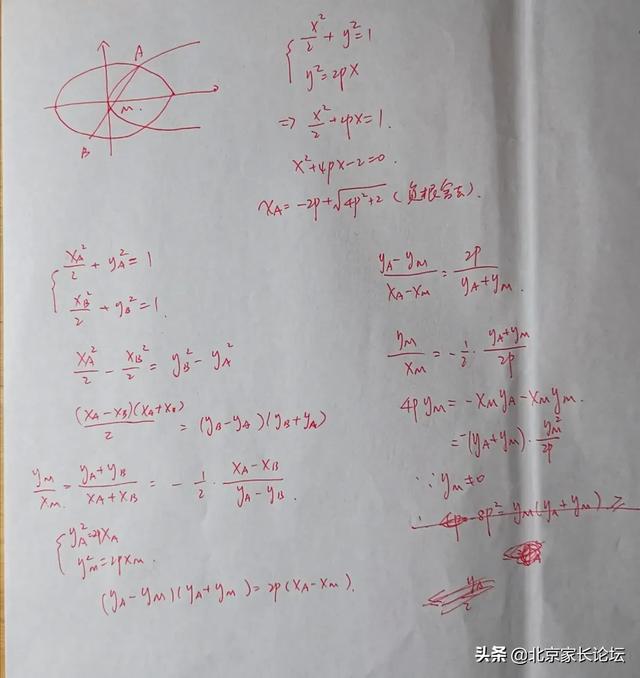 A
M
B
{ x²/2 + y² = 1
y² = 2px
=> x²/2 + 2px = 1.
x² + 4px - 2 = 0.
x_A = -2p + √(4p² + 2) (负根舍去).
{ x_A²/2 + y_A² = 1
x_B²/2 + y_B² = 1.
x_A²/2 - x_B²/2 = y_B² - y_A²
(x_A - x_B)(x_A + x_B)/2 = (y_B - y_A)(y_B + y_A)
y_M/x_M = (y_A + y_B)/(x_A + x_B) = - 1/2 · (x_A - x_B)/(y_A - y_B).
{ y_A² = 2px_A
y_M² = 2px_M.
(y_A - y_M)(y_A + y_M) = 2p(x_A - x_M).
(y_A - y_M)/(x_A - x_M) = 2p/(y_A + y_M).
y_M/x_M = - 1/2 · (y_A + y_M)/2p
4p y_M = -x_M y_A - x_M y_M.
= -(y_A + y_M) · y_M²/2p
∵ y_M ≠ 0
∴ -8p² = y_M(y_A + y_M) ≥
头条 @北京家长论坛